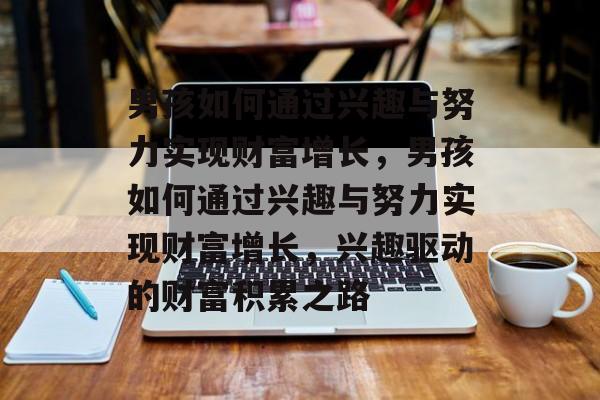 男孩如何通过兴趣与努
力实现财富增长，男孩
如何通过兴趣与努力实
现财富增长，兴趣驱动
的财富积累之路